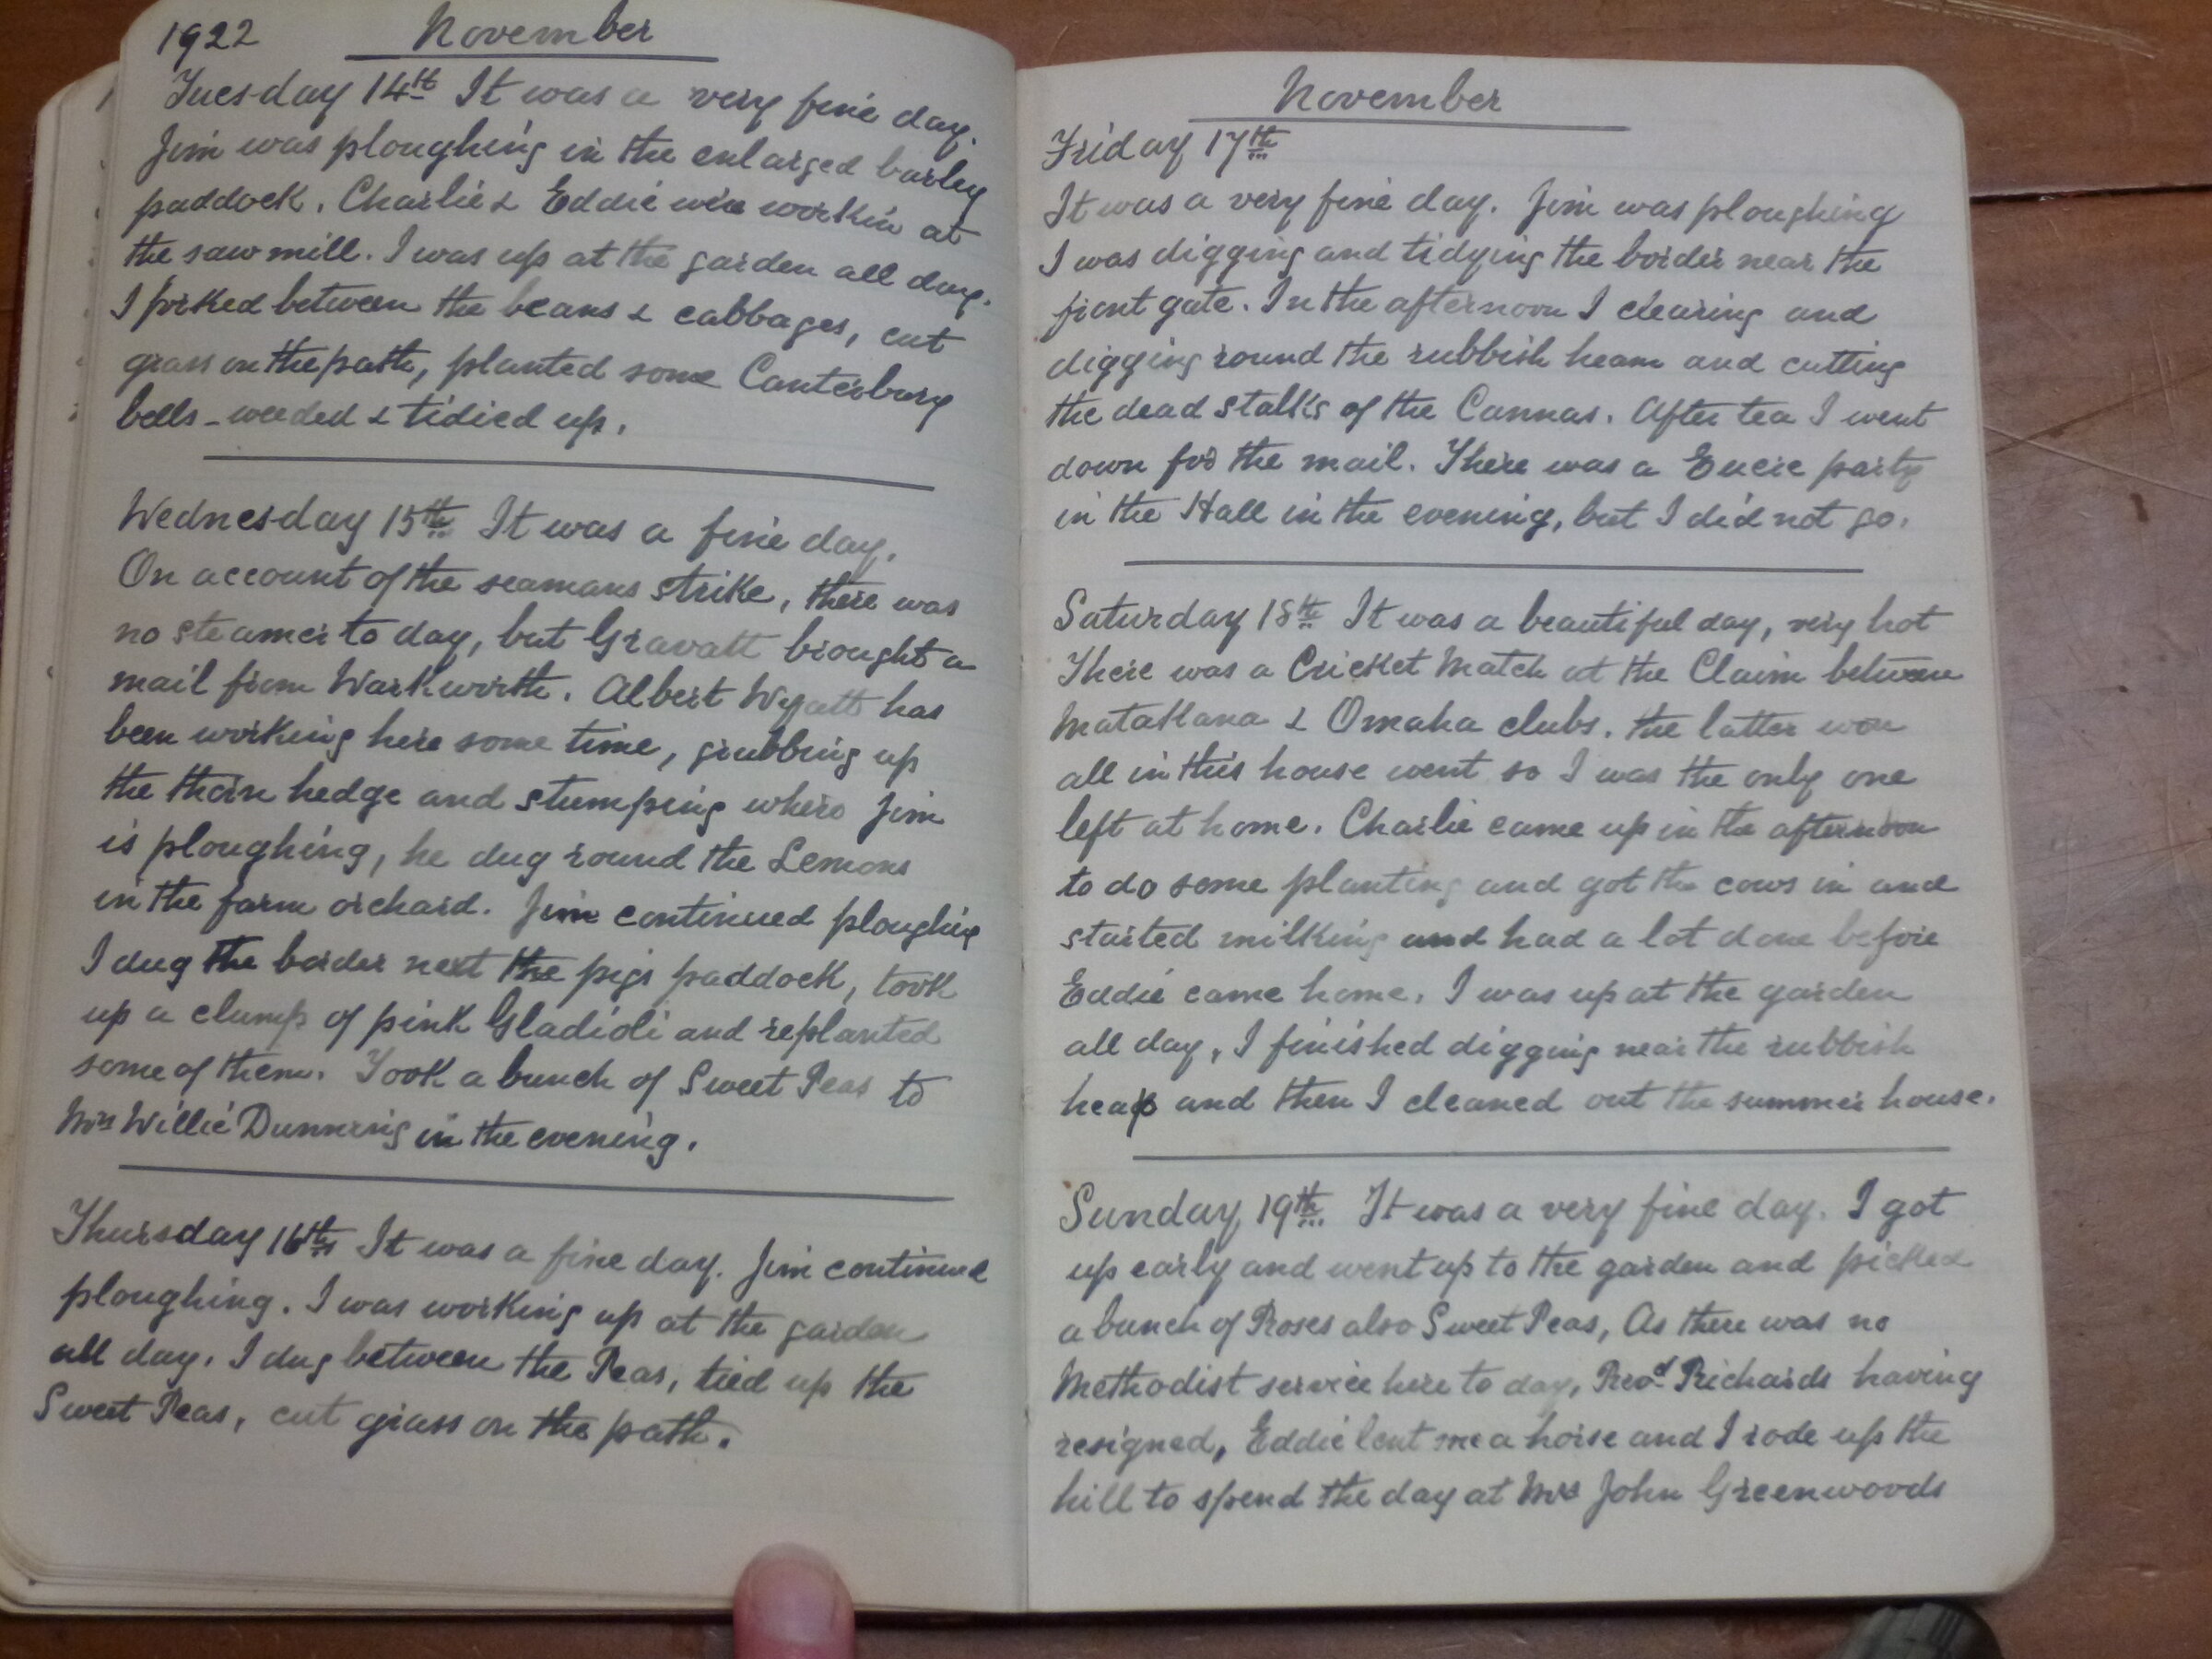 1922 November
Tuesday 14th It was a very fine day.
Jim was ploughing in the enlarged barley
paddock. Charlie & Eddie were workin at
the saw mill. I was up at the garden all day.
I forked between the beans & cabbages, cut
grass on the path, planted some Canterbury
bells - weeded & tidied up.
Wednesday 15th It was a fine day.
On account of the seamans strike, there was
no steamer to day, but Gravatt brought a
mail from Warkworth. Albert Wyatt has
been working here some time, grubbing up
the thorn hedge and stumping where Jim
is ploughing, he dug round the Lemons
in the farm orchard. Jim continued ploughing
I dug the border next the pigs paddock, took
up a clump of pink Gladioli and replanted
some of them. Took a bunch of Sweet Peas to
Mrs Willie Dunning in the evening.
Thursday 16th It was a fine day. Jim continued
ploughing. I was working up at the garden
all day. I dug between the Peas, tied up the
Sweet Peas, cut grass on the path.
November
Friday 17th
It was a very fine day. Jim was ploughing
I was digging and tidying the border near the
front gate. In the afternoon I clearing and
digging round the rubbish heam and cutting
the dead stalks of the Cannas. After tea I went
down for the mail. There was a Eucre party
in the Hall in the evening, but I did not go.
Saturday 18th It was a beautiful day, very hot
There was a Cricket Match at the Claim between
Matakana & Omaha clubs. the latter won
all in this house went so I was the only one
left at home. Charlie came up in the afternoon
to do some planting and got the cows in and
started milking and had a lot done before
Eddie came home. I was up at the garden
all day, I finished digging near the rubbish
heap and then I cleaned out the summer house.
Sunday 19th It was a very fine day. I got
up early and went up to the garden and picked
a bunch of Roses also Sweet Peas, As there was no
Methodist service here to day, Revd Richards having
resigned, Eddie lent me a horse and I rode up the
hill to spend the day at Mrs John Greenwoods